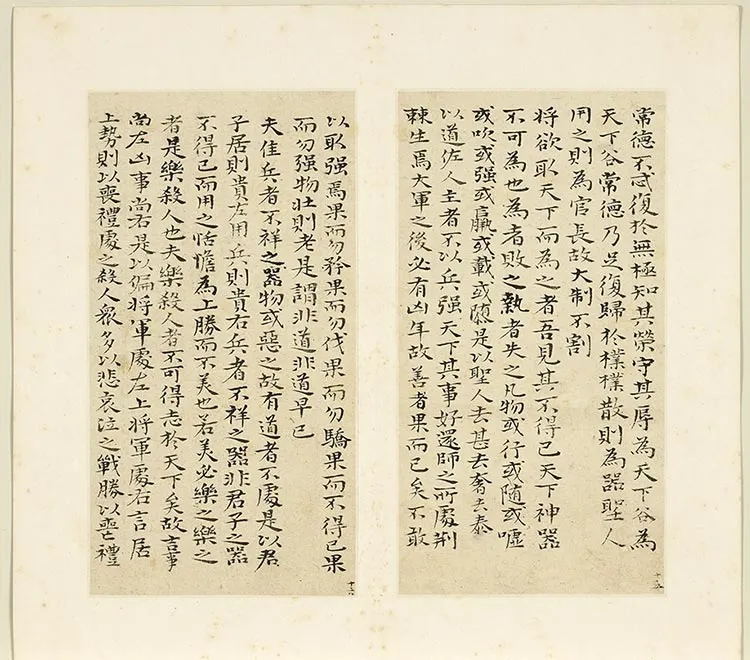 常德不忒復於無極知其榮守其辱為天下谷為
天下谷常德乃足復歸於樸樸散則為器聖人
用之則為官長故大制不割
将欲取天下而為之者吾見其不得已天下神器
不可為也為者敗之執者失之凡物或行或随或噓
或吹或强或羸或載或隳是以聖人去甚去奢去泰
以道佐人主者不以兵强天下其事好還師之所處荊
棘生焉大軍之後必有凶年故善者果而已矣不敢
十五
以取强焉果而勿矜果而勿伐果而勿驕果而不得已果
而勿强物壮則老是謂非道非道早已
夫佳兵者不祥之器物或惡之故有道者不處是以君
子居則貴左用兵則貴右兵者不祥之器非君子之器
不得已而用之恬憺為上勝而不美也若美必樂之樂之
者是樂殺人也夫樂殺人者不可得志於天下矣故吉事
尚左凶事尚右是以偏将軍處左上将軍處右言居
上勢則以喪禮處之殺人衆多以悲哀泣之戰勝以喪禮
十六